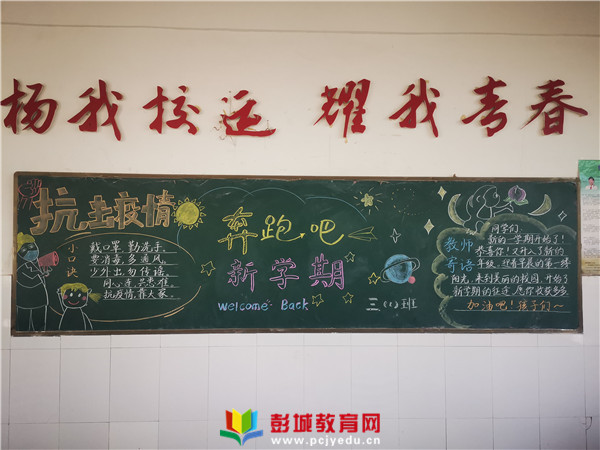 杨我校运 耀我青春
抗击疫情
小口诀
戴口罩,勤洗手,
要消毒,多通风,
少外出,勿传谣,
同心,共患难,
抗疫情,靠大家。
奔跑吧
新学期
Welcome Back
三 班
教师
寄语
同学们
新的一学期开始了!
恭喜你!又升入了新的
年级。早晨的第一缕
阳光,来到美丽的校园,开始了
新学期的征途,愿你收获多多
加油吧!孩子们~
彭城教育网
www.pcjyedu.cn